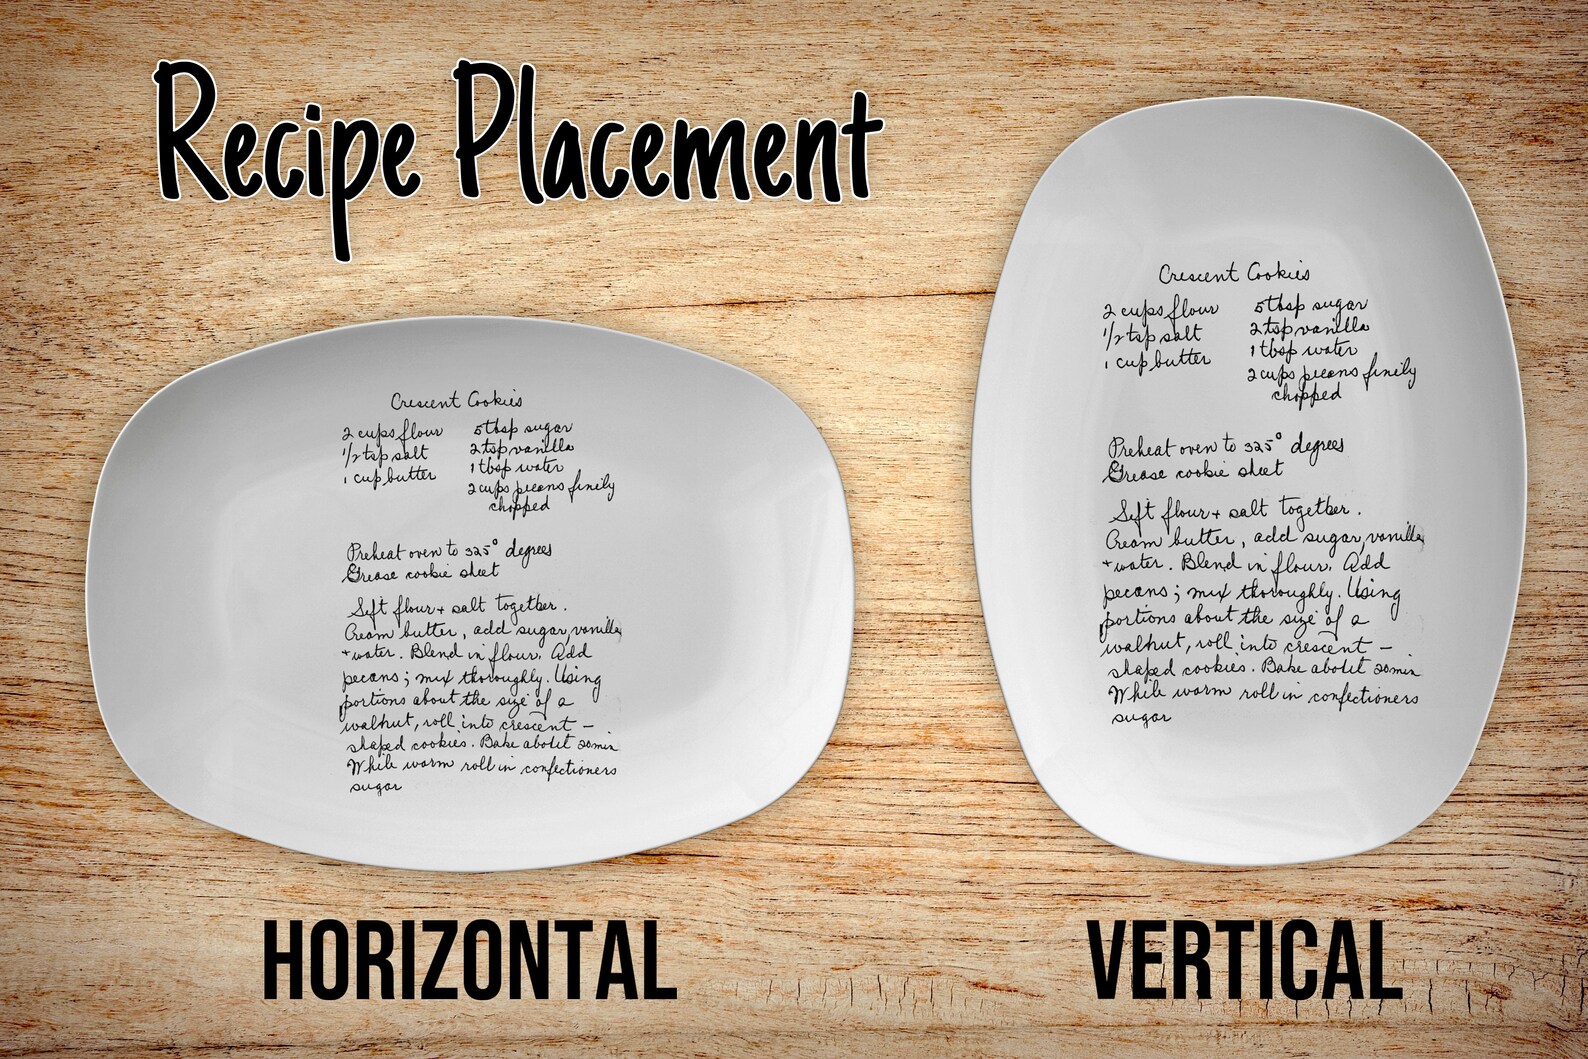 Recipe Placement
Crescent Cookies
2 cups flour
1/2 tsp salt
1 cup butter
5 tbsp sugar
2 tsp vanilla
1 tbsp water
2 cups pecans finely
chopped
Preheat oven to 325° degrees
Grease cookie sheet
Sift flour + salt together.
Cream butter, add sugar, vanilla
+ water. Blend in flour. Add
pecans; mix thoroughly. Using
portions about the size of a
walnut, roll into crescent –
shaped cookies. Bake about 20 min
While warm roll in confectioners
sugar
HORIZONTAL
Crescent Cookies
2 cups flour
1/2 tsp salt
1 cup butter
5 tbsp sugar
2 tsp vanilla
1 tbsp water
2 cups pecans finely
chopped
Preheat oven to 325° degrees
Grease cookie sheet
Sift flour + salt together.
Cream butter, add sugar, vanilla
+ water. Blend in flour. Add
pecans; mix thoroughly. Using
portions about the size of a
walnut, roll into crescent –
shaped cookies. Bake about 20 min
While warm roll in confectioners
sugar
VERTICAL